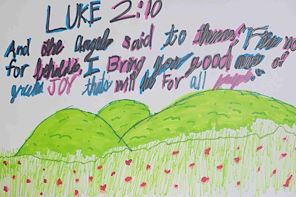 LUKE 2:10
And the Angels said to them, Fear no
for behold I Bring you good news of
great JOY that will be For all people